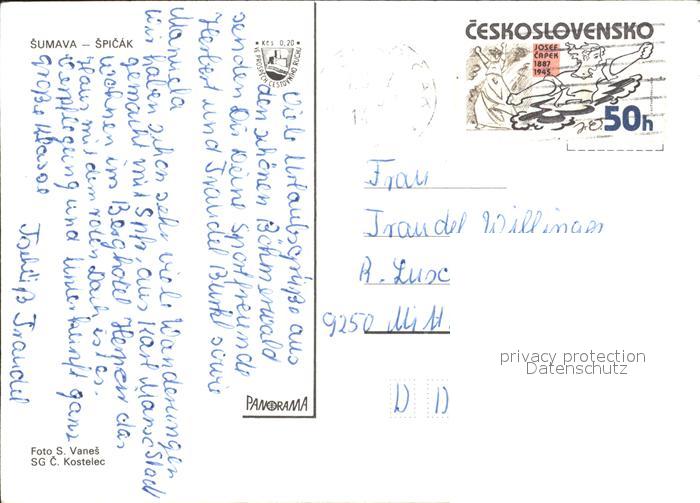 ŠUMAVA — ŠPIČÁK
Kčs 0,20
VE PROSPĚCH CESTOVNÍHO RUCHU
Viele Urlaubsgrüße aus
den schönen Böhmerwald
senden Dir Deine Sportfreunde
Herbert und Traudel Burkl sowie
Manuela
Wir haben schon sehr viele Wanderungen
gemacht mit Snfr aus Karl Marx Stadt
wohnen im Berghotel das
Haus mit den roten Dach ist es.
Verpflegung und Unterkunft ganz
große Klasse
Tschüß Traudel
Foto S. Vaneš
SG Č. Kostelec
PANORAMA
ČESKOSLOVENSKO
JOSEF
ČAPEK
1887
1945
50h
Frau
Traudel Willinger
R. Lux
9250 Mitt
D D
privacy protection
Datenschutz